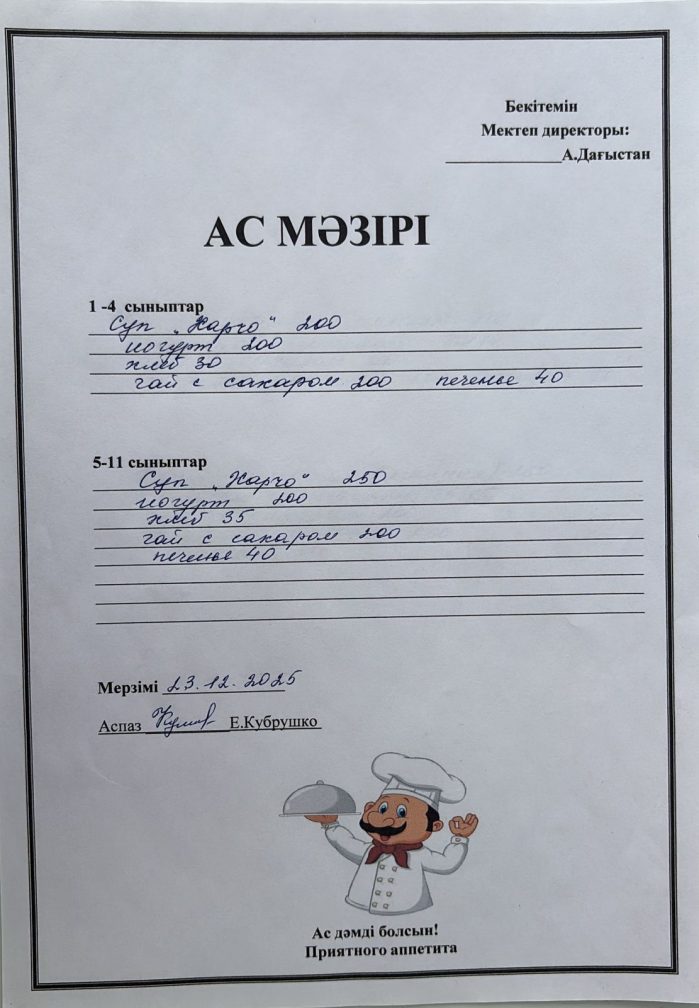 Бекітемін
Мектеп директоры:
______________А.Дағыстан
АС МӘЗІРІ
1 -4 сыныптар
Суп „Харчо" 200
йогурт 200
хлеб 30
чай с сахаром 200 печенье 40
5-11 сыныптар
Суп „Харчо" 250
йогурт 200
хлеб 35
чай с сахаром 200
печенье 40
Мерзімі 23.12.2025
Аспаз __________Е.Кубрушко
Ас дәмді болсын!
Приятного аппетита